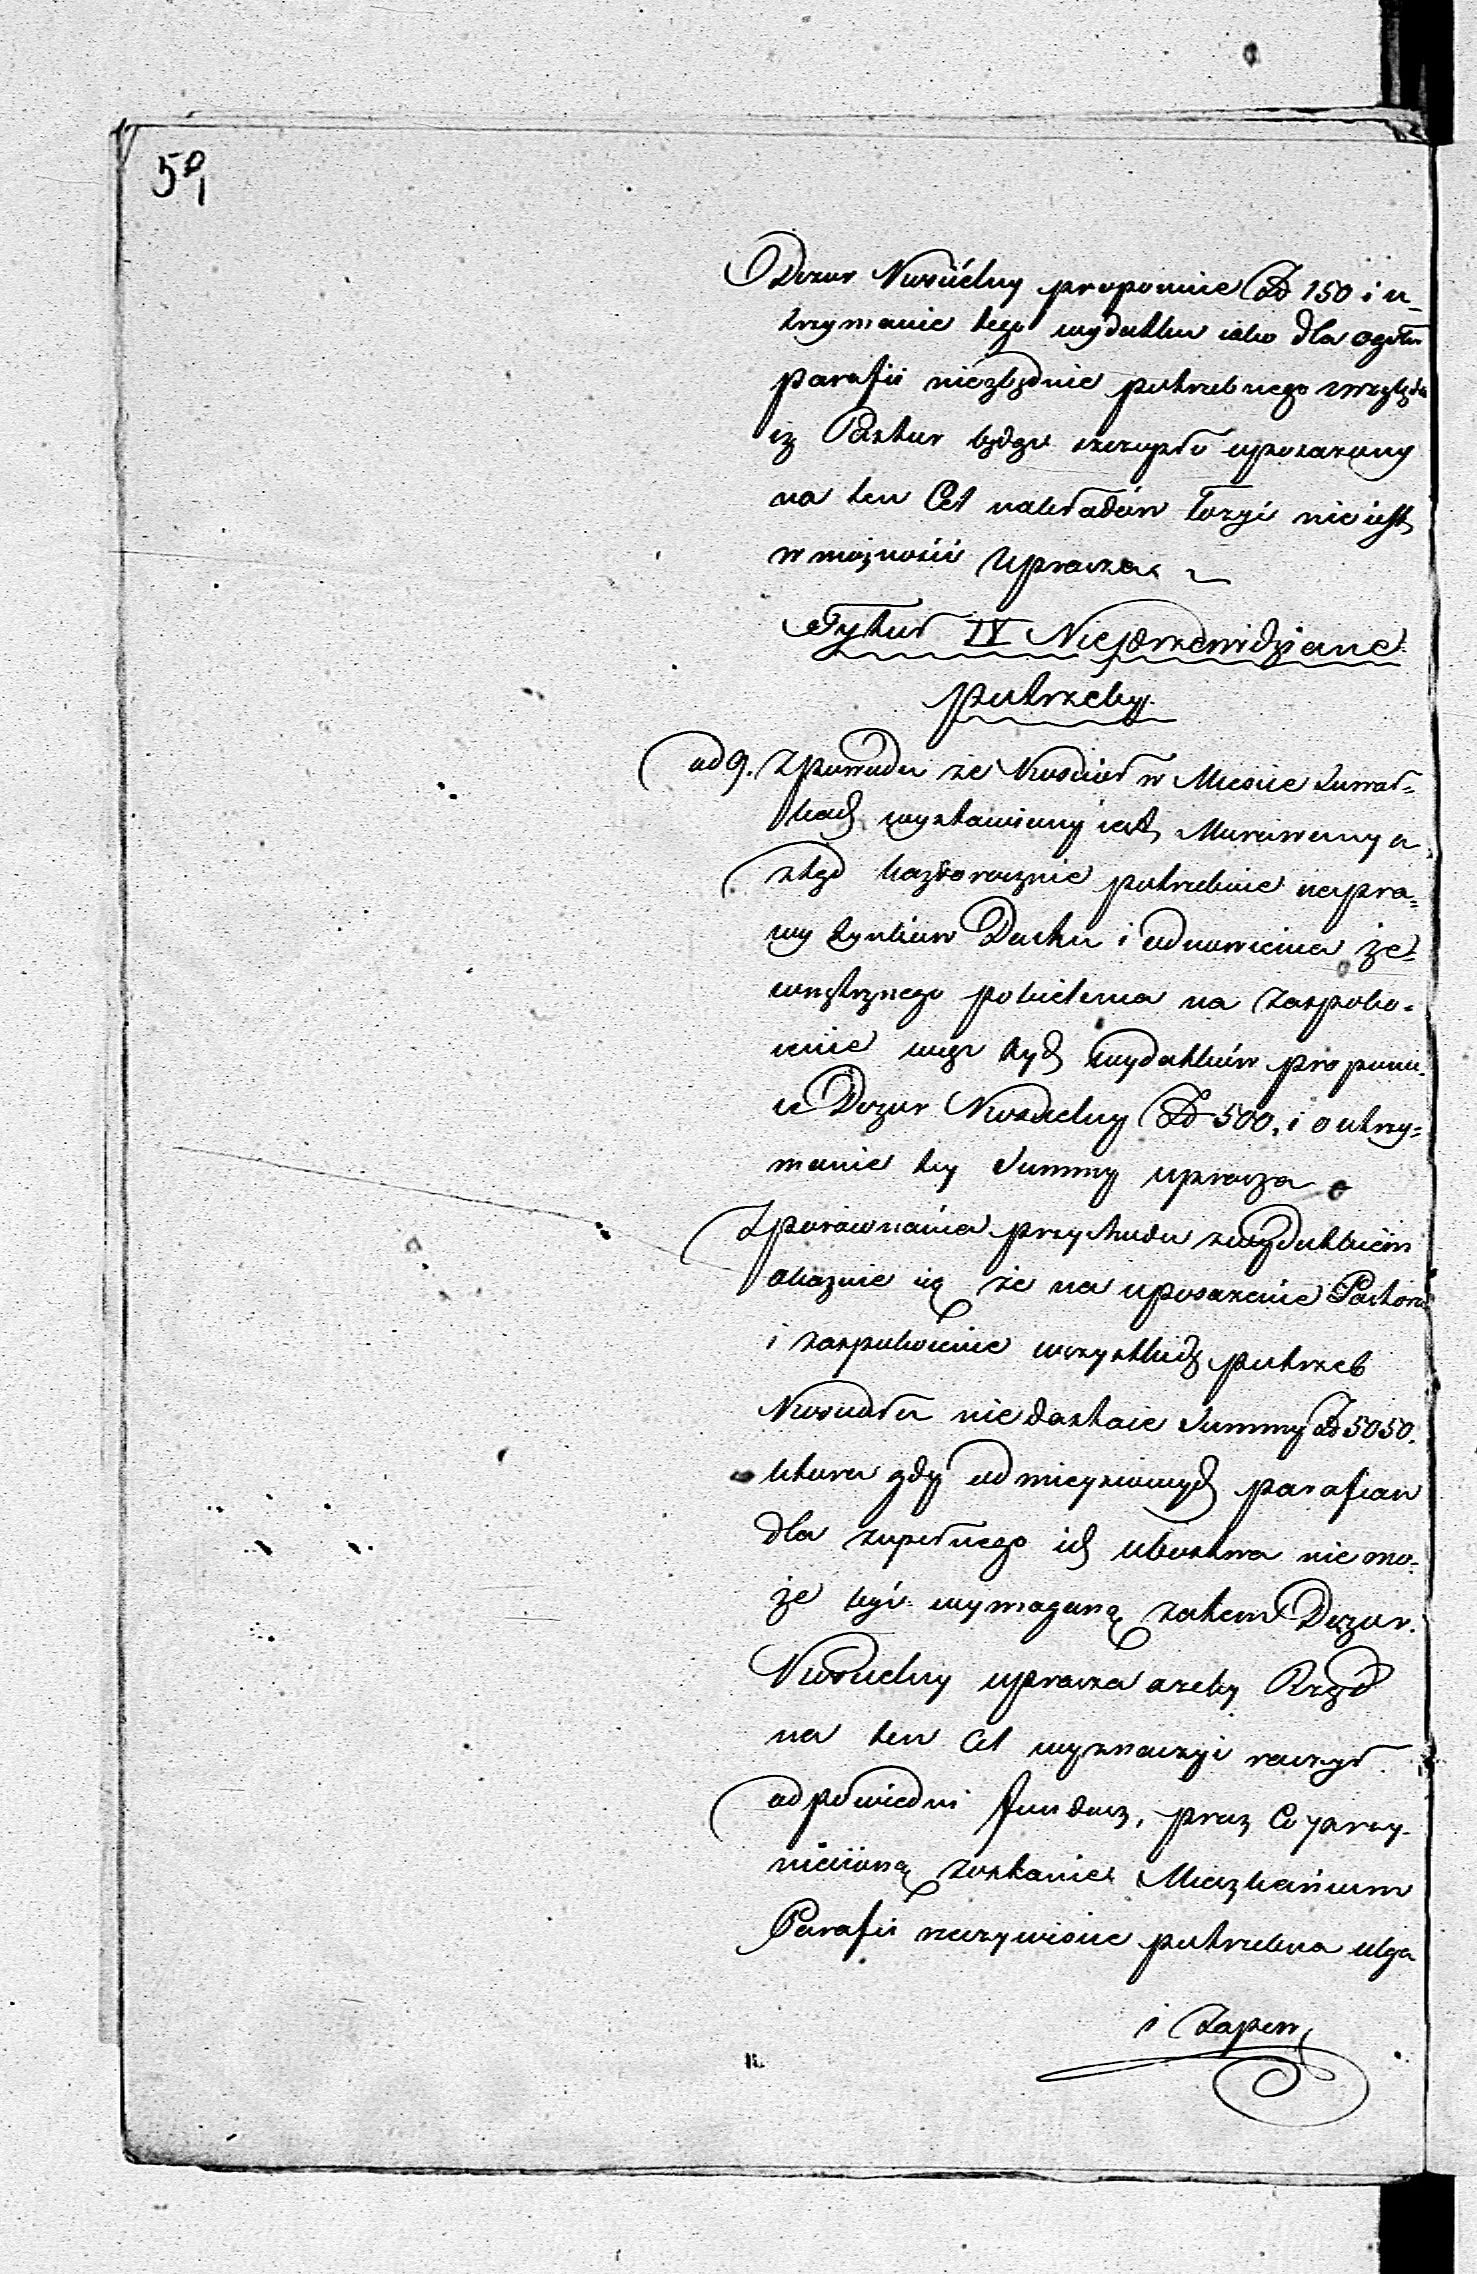 59
Dozur Kościelny proponuie Zł 150 i u-
trzymanie tego wydatku iako dla ogółu
parafii niezbędnie potrzebnego zwzględu
iż Pastur będąc szczupło uposażony
na ten Cel nakładów łożyć nie iest
w możności uprasza.
Tytuł IV Nieprzewidziane
potrzeby.
ad 9. Zpowodu że Kościoł w Miescie Suwał-
kach wystawiony iest Murowany a
ztąd każdorocznie potrzebuie napra-
wy tynków Dachu i odnowienia ze-
wnętrznego pobielenia na zaspoko-
ienie więc tych wydatków proponu-
ie Dozur Kościelny Zł 500, i o utrzy-
manie tey Summy uprasza
Zporównania przychodu zwydatkiem
okazuie się że na uposażenie Pastora
i zaspokoienie wszystkich potrzeb
Kościoła niedostaie Summy Zł 5050.
ktora gdy od mieyscowych parafian
dla zupełnego ich ubostwa nie mo-
że być wymaganą zatem Dozur
Kościelny uprasza ażeby Rząd
na ten Cel wyznaczyć raczył
odpowiedni fundusz, przez Co przy-
niesioną zostanie Mieszkańcom
Parafii rzeczywiscie potrzebna ulga
i Zapew